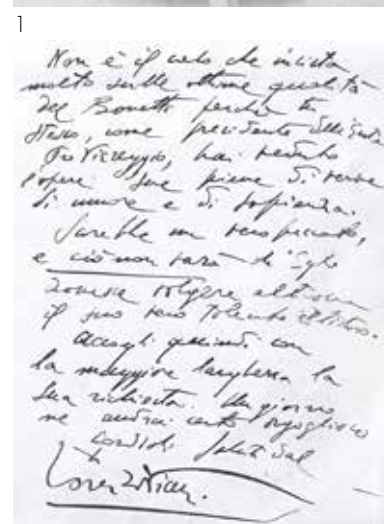 1
Non è il caso che insista
molto sulle ottime qualità
del Bonetti perchè tu
stesso, come presidente della
Pro Viareggio, hai veduto
l'opere sue piene di verve
di umore e di sapienza.
Sarebbe un vero peccato,
e ciò non sarà che Egli
dovesse volgere altrove
il suo vero talento
Accogli quindi con
la maggiore larghezza la
sua richiesta. Un giorno
ne andrai certo orgoglioso
Cordiali saluti dal
tuo
Lorenzo Viani.